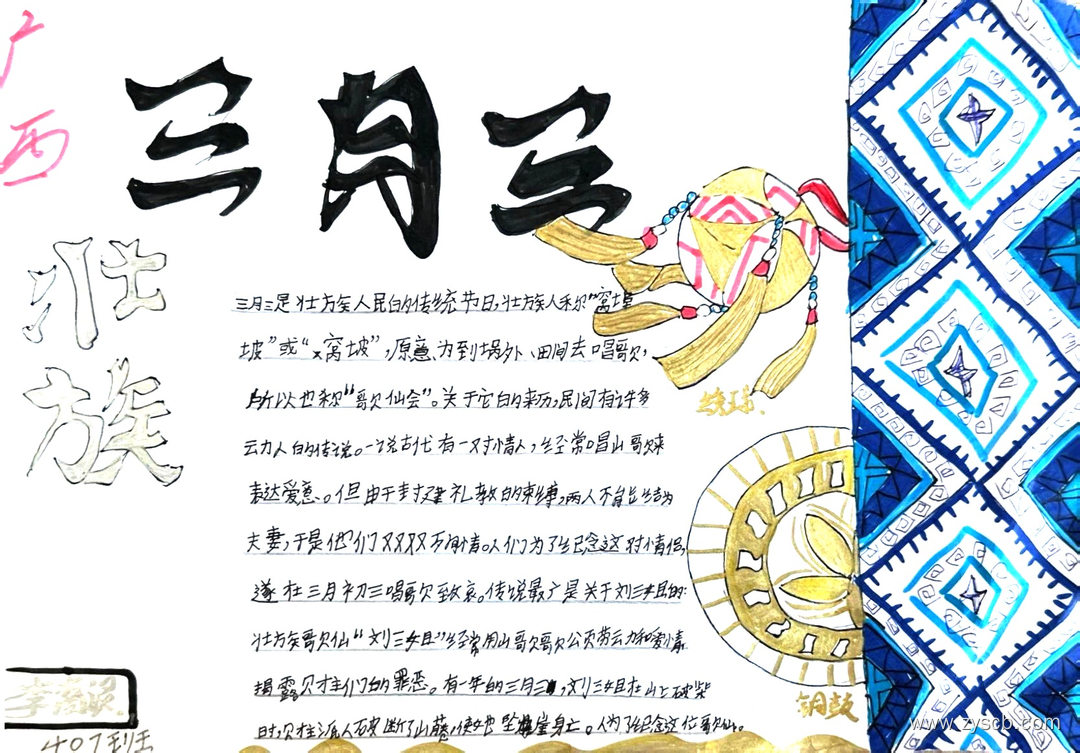 广西
三月三
壮族
三月三是壮族人民的传统节日,壮族人称"窝埠
坡"或"窝坡",原意为到埸外、田间去唱歌,
所以也称"歌仙会"。关于它的来历,民间有许多
动人的传说。一说古代有一对情人,经常唱山歌来
表达爱意。但由于封建礼教的束缚,两人不能结为
夫妻,于是他们双双殉情。人们为了纪念这对情侣,
遂在三月初三唱歌致哀。传说最广是关于刘三姐的:
壮族歌仙"刘三姐"经常用山歌歌公页劳动和爱情
揭露财主们的罪恶。有一年的三月三,刘三姐在山上砍柴
时,财主派人砍断了山藤,使她坠崖身亡。人为了纪念这位歌仙。
绣球.
铜鼓
407班
www.zyscb.com